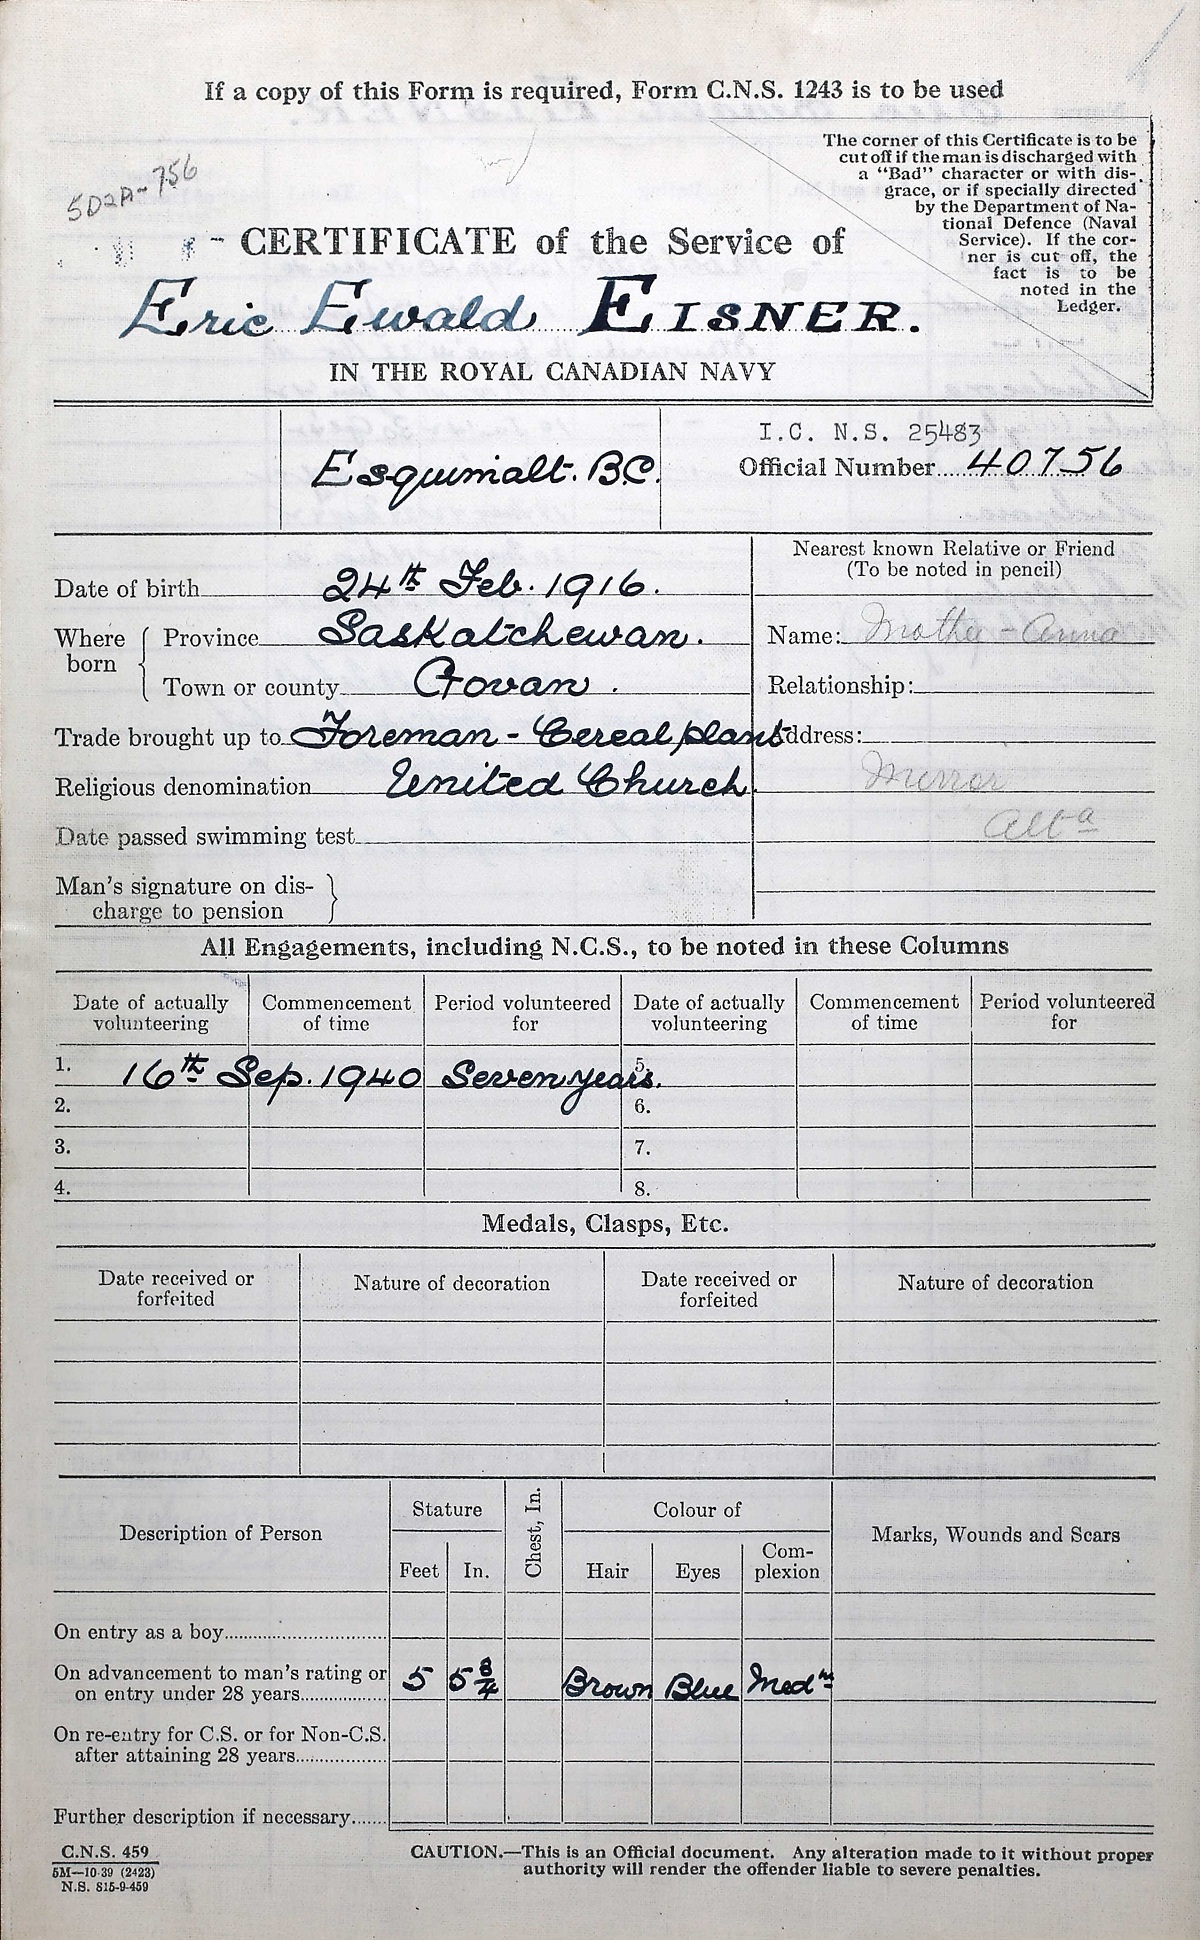 If a copy of this Form is required, Form C.N.S. 1243 is to be used
The corner of this Certificate is to be
cut off if the man is discharged with
a "Bad" character or with dis-
grace, or if specially directed
by the Department of Na-
tional Defence (Naval
Service). If the cor-
ner is cut off, the
fact is to be
noted in the
Ledger.
5D2A-756
CERTIFICATE of the Service of
Eric Ewald EISNER.
IN THE ROYAL CANADIAN NAVY
Esquimalt. B.C.
I.C. N.S. 25483
Official Number 40756
Date of birth 24th Feb. 1916.
Where born
Province Saskatchewan.
Town or county Govan.
Trade brought up to Foreman - Cereal plant
Religious denomination United Church.
Date passed swimming test
Man's signature on dis-
charge to pension
Nearest known Relative or Friend
(To be noted in pencil)
Name: Mother - Anna
Relationship:
Address:
Mirror
Alta
All Engagements, including N.C.S., to be noted in these Columns
Date of actually volunteering Commencement of time Period volunteered for Date of actually volunteering Commencement of time Period volunteered for
1. 16th Sep. 1940 Seven years. 5.
2. 6.
3. 7.
4. 8.
Medals, Clasps, Etc.
Date received or forfeited Nature of decoration Date received or forfeited Nature of decoration
Description of Person Stature Chest, In. Colour of Marks, Wounds and Scars
Feet In. Hair Eyes Com-plexion
On entry as a boy
On advancement to man's rating or
on entry under 28 years 5 5 3/4 Brown Blue Medm
On re-entry for C.S. or for Non-C.S.
after attaining 28 years
Further description if necessary
C.N.S. 459
5M—10-39 (2423)
N.S. 815-9-459
CAUTION.—This is an Official document. Any alteration made to it without proper
authority will render the offender liable to severe penalties.